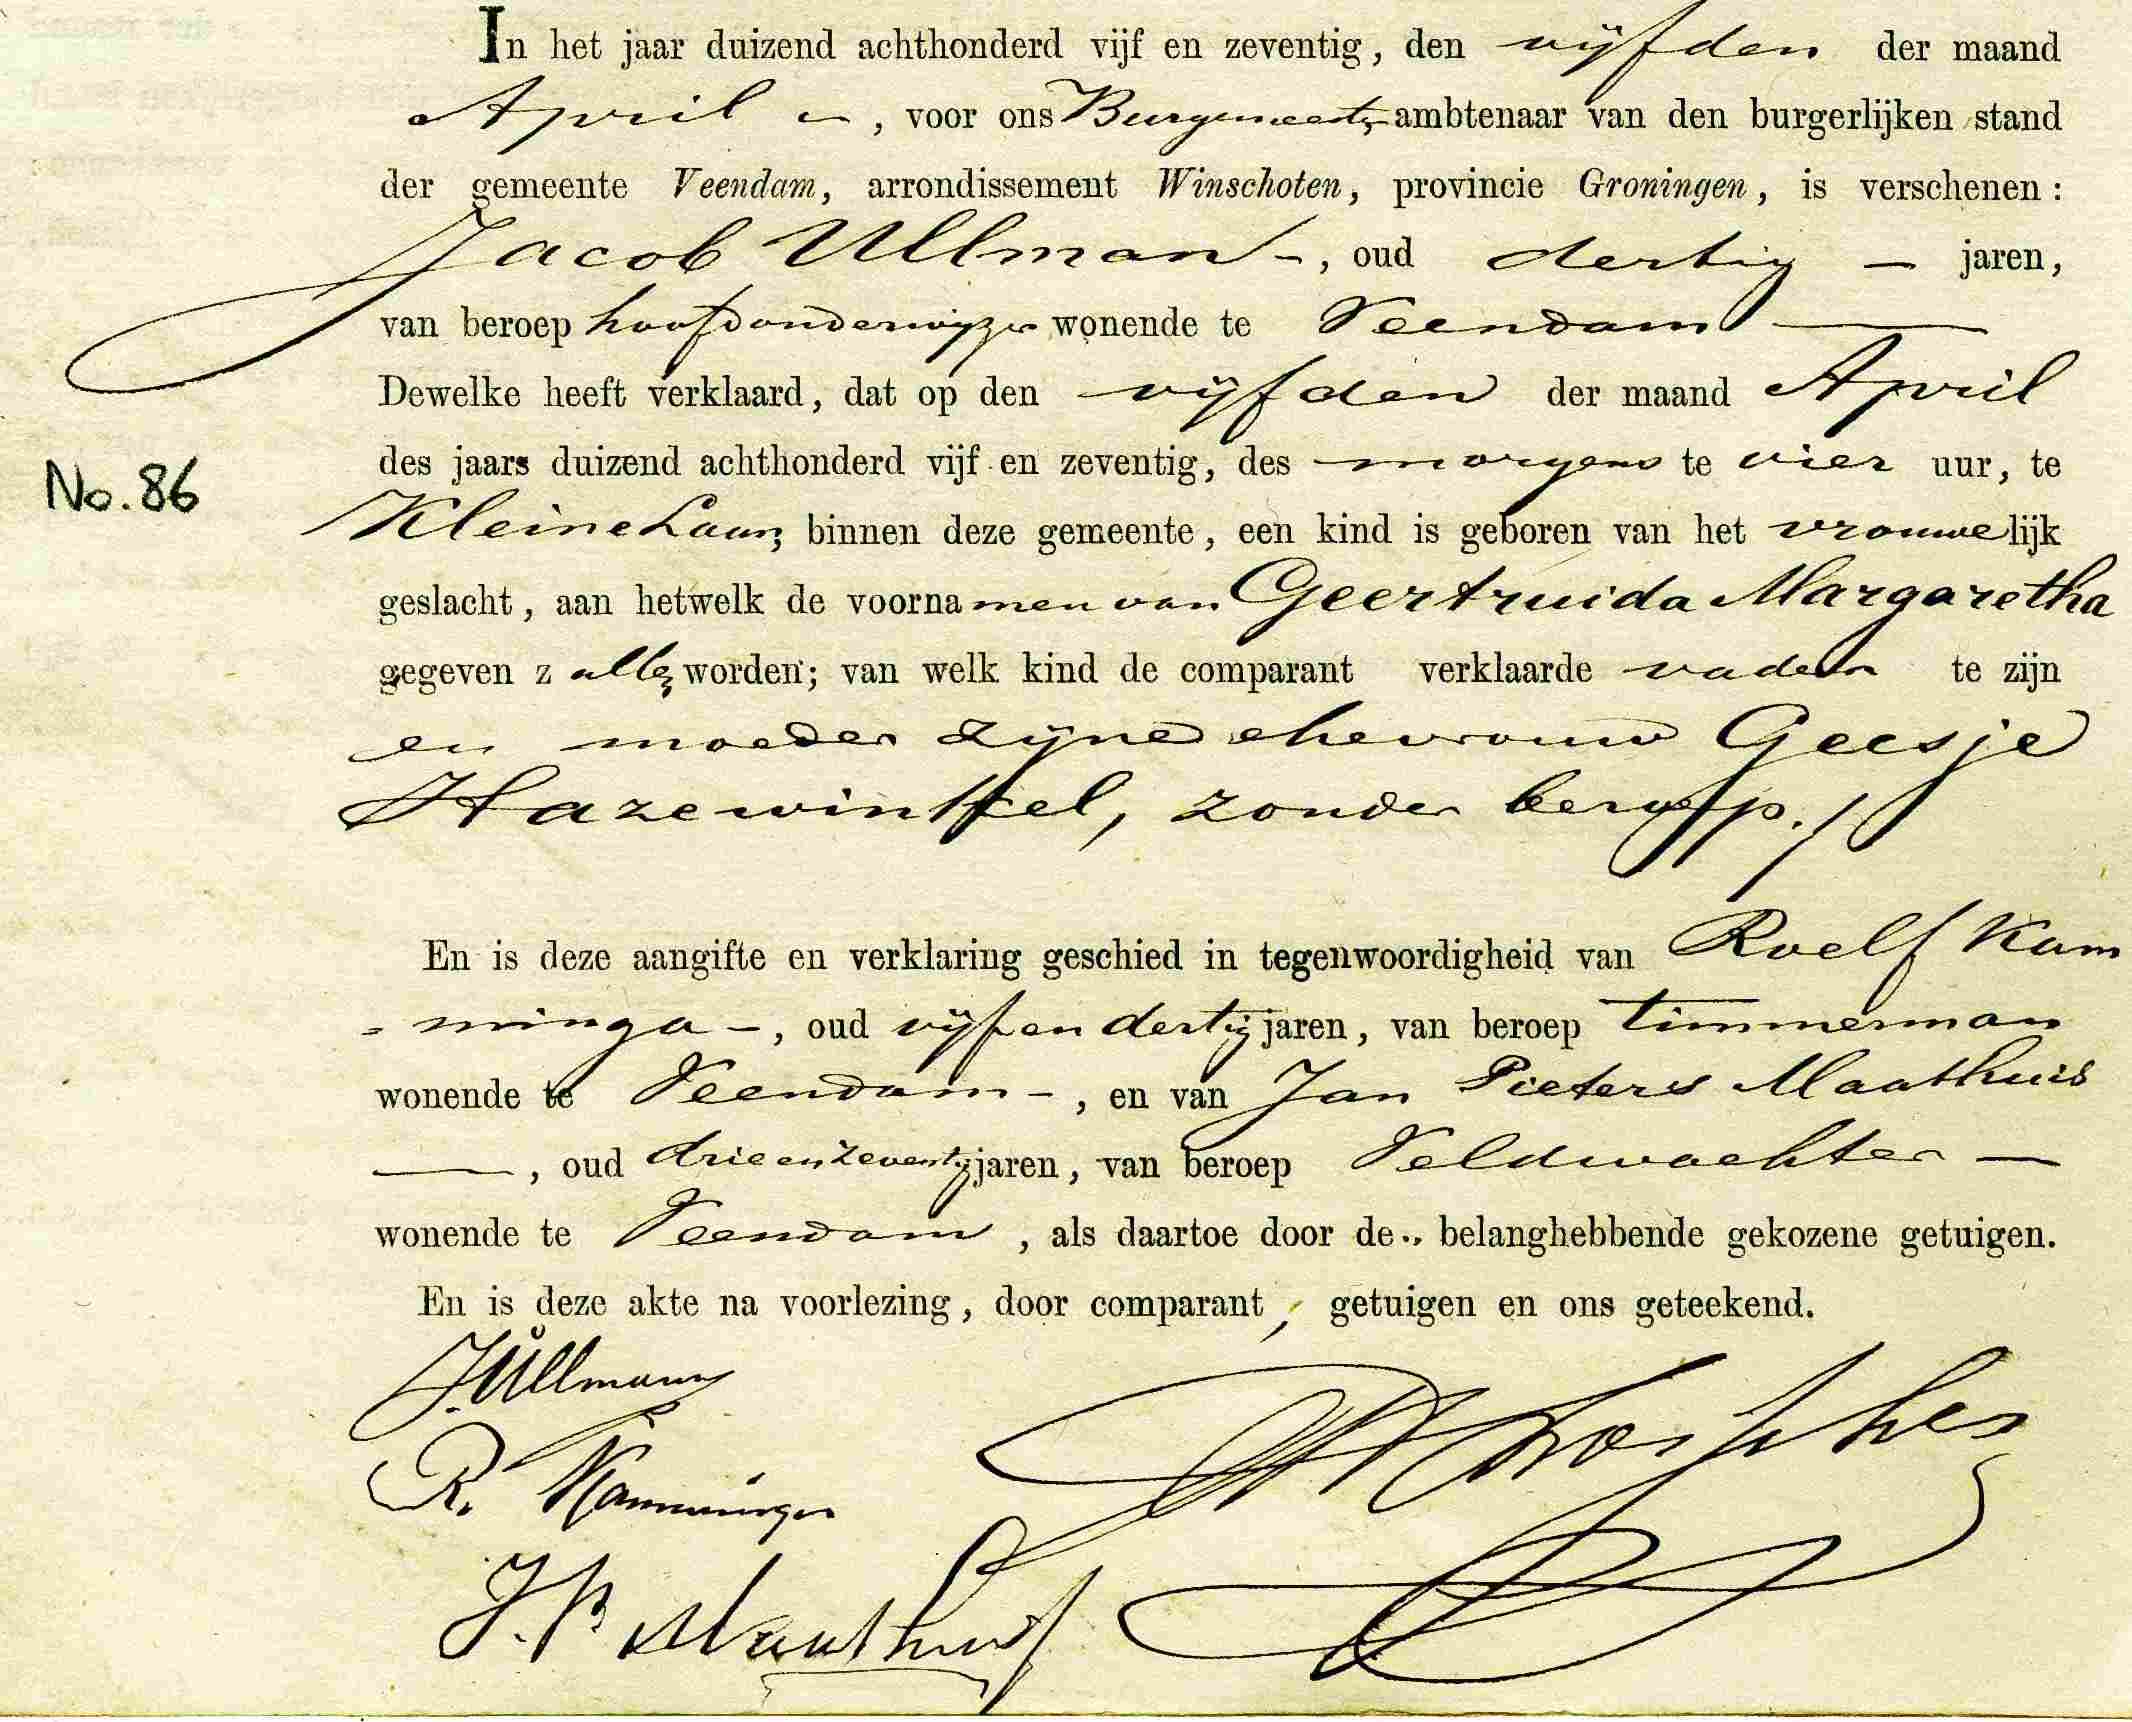 In het jaar duizend achthonderd vijf en zeventig, den vijfden der maand
April -, voor ons Burgemeester, ambtenaar van den burgerlijken stand
der gemeente Veendam, arrondissement Winschoten, provincie Groningen, is verschenen:
Jacob Ullman -, oud dertig - jaren,
van beroep hoofdonderwijzer wonende te Veendam —
Dewelke heeft verklaard, dat op den vijfden der maand April
des jaars duizend achthonderd vijf en zeventig, des morgens te vier uur, te
No. 86
Kleinelaan, binnen deze gemeente, een kind is geboren van het vrouwelijk
geslacht, aan hetwelk de voornamen van Geertruida Margaretha
gegeven z ullen worden; van welk kind de comparant verklaarde vader te zijn
en moeder zijne ehevrouw Geesje
Hazewinkel, zonder beroep./
En is deze aangifte en verklaring geschied in tegenwoordigheid van Roelf Kam
= minga -, oud vijfendertig jaren, van beroep timmerman
wonende te Veendam -, en van Jan Pieters Maathuis
—, oud drieenzeventig jaren, van beroep Veldwachter —
wonende te Veendam, als daartoe door de.. belanghebbende gekozene getuigen.
En is deze akte na voorlezing, door comparant, getuigen en ons geteekend.
J. Ullmann
R. Kamminga
J. P. Maathuis